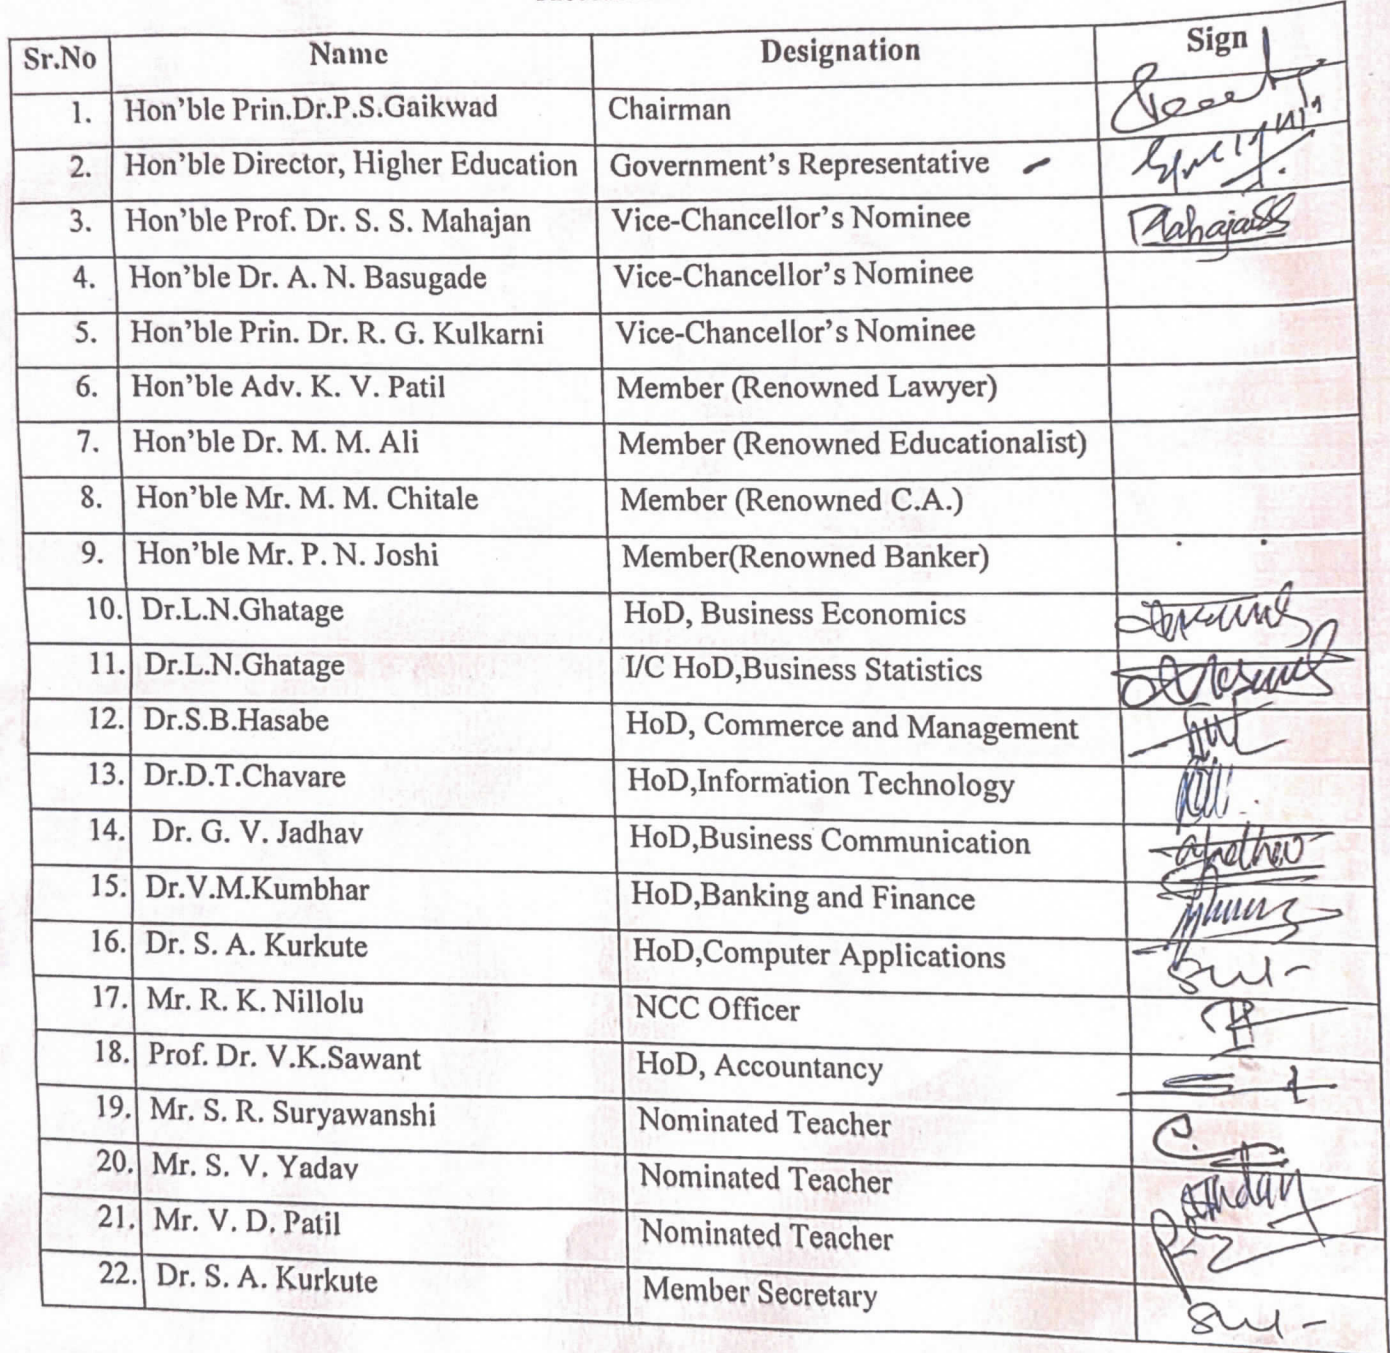 Sr.No Name Designation Sign
1. Hon'ble Prin.Dr.P.S.Gaikwad Chairman
2. Hon'ble Director, Higher Education Government's Representative -
3. Hon'ble Prof. Dr. S. S. Mahajan Vice-Chancellor's Nominee MahajanSS
4. Hon'ble Dr. A. N. Basugade Vice-Chancellor's Nominee
5. Hon'ble Prin. Dr. R. G. Kulkarni Vice-Chancellor's Nominee
6. Hon'ble Adv. K. V. Patil Member (Renowned Lawyer)
7. Hon'ble Dr. M. M. Ali Member (Renowned Educationalist)
8. Hon'ble Mr. M. M. Chitale Member (Renowned C.A.)
9. Hon'ble Mr. P. N. Joshi Member(Renowned Banker)
10. Dr.L.N.Ghatage HoD, Business Economics
11. Dr.L.N.Ghatage I/C HoD,Business Statistics
12. Dr.S.B.Hasabe HoD, Commerce and Management
13. Dr.D.T.Chavare HoD,Information Technology
14. Dr. G. V. Jadhav HoD,Business Communication
15. Dr.V.M.Kumbhar HoD,Banking and Finance
16. Dr. S. A. Kurkute HoD,Computer Applications
17. Mr. R. K. Nillolu NCC Officer
18. Prof. Dr. V.K.Sawant HoD, Accountancy
19. Mr. S. R. Suryawanshi Nominated Teacher
20. Mr. S. V. Yadav Nominated Teacher
21. Mr. V. D. Patil Nominated Teacher
22. Dr. S. A. Kurkute Member Secretary